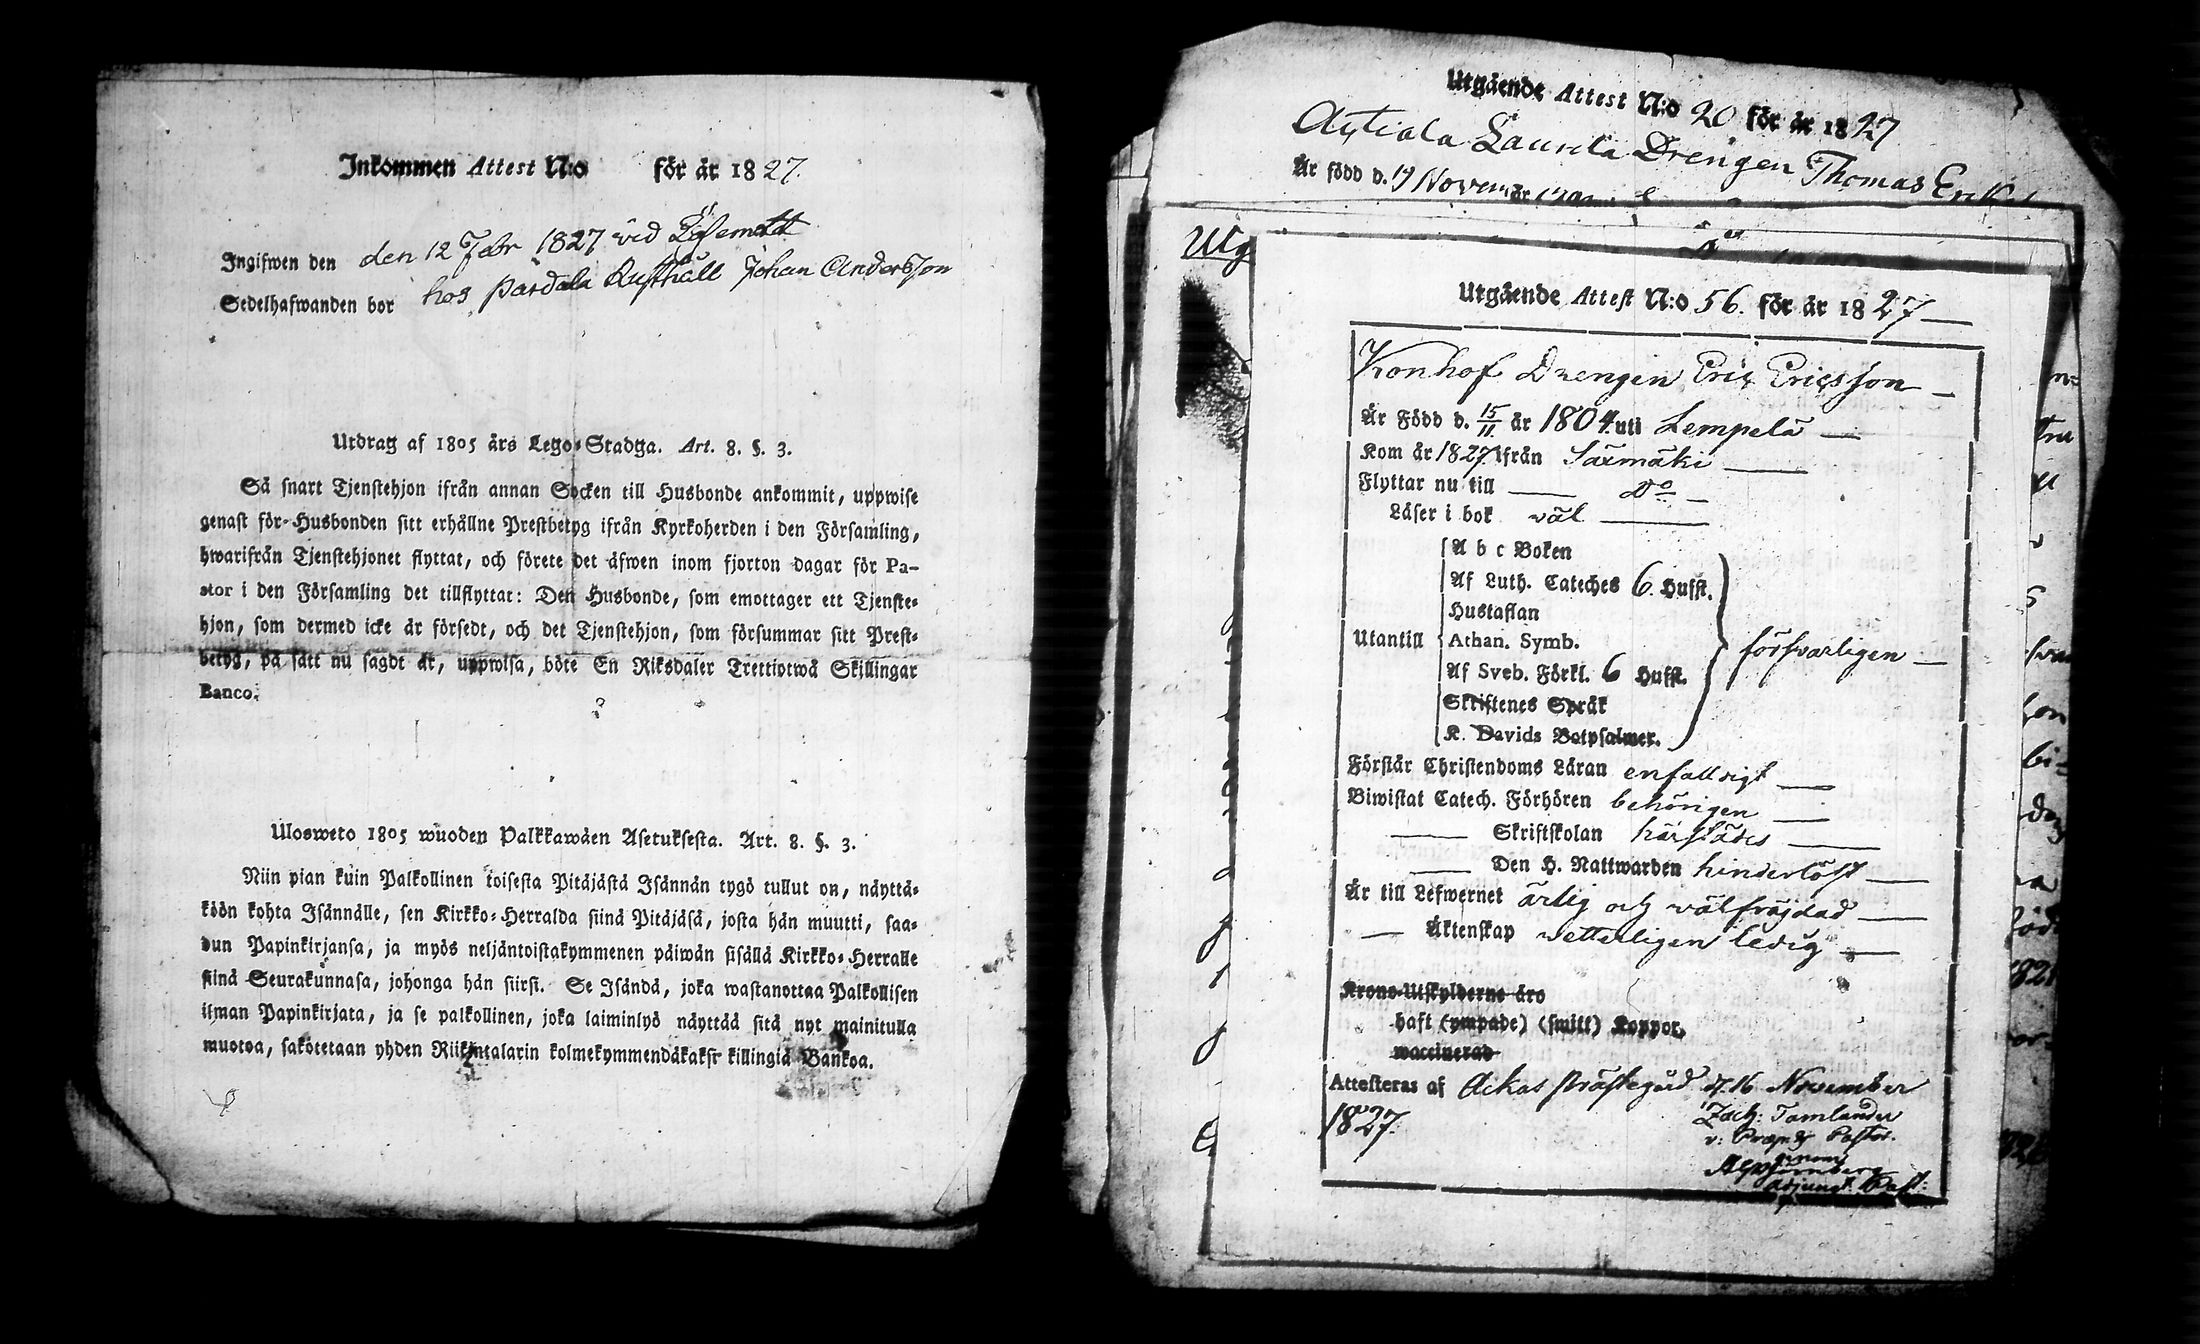 Inkommen Attest N:o för år 1827.
Ingifwen den den 12 Febr 1827 vid
Sedelhafwanden bor hos Pardala Rusthåll Johan Andersson
Utdrag af 1805 års Lego-Stadga. Art. 8. §. 3.
Så snart Tjenstehjon ifrån annan Socken till Husbonde ankommit, uppwise
genast för Husbonden sitt erhållne Prestbetyg ifrån Kyrkoherden i den Församling,
hwarifrån Tjenstehjonet flyttat, och förete det äfwen inom fjorton dagar för Pa-
stor i den Församling det tillflyttat: Den Husbonde, som emottager ett Tjenste-
hjon, som dermed icke är försedt, och det Tjenstehjon, som försummar sitt Prest-
betyg, på sätt nu sagdt är, uppwisa, böte En Riksdaler Trettiotwå Skillingar
Banco.
Ulosweto 1805 wuoden Palkkawäen Asetuksesta. Art. 8. §. 3.
Niin pian kuin Palkollinen toisesta Pitäjästä Isännän tygö tullut on, näyttä-
köön kohta Isännälle, sen Kirkko-Herralda siinä Pitäjäsä, josta hän muutti, saa-
dun Papinkirjansa, ja myös neljäntoistakymmenen päiwän sisällä Kirkko-Herralle
siinä Seurakunnasa, johonga hän siirsi. Se Isändä, joka wastanottaa Palkollisen
ilman Papinkirjata, ja se palkollinen, joka laiminlyö näyttää sitä nyt mainitulla
muotoa, sakotetaan yhden Riikintalarin kolmekymmendäkaksi killingiä Bankoa.
Utgående Attest N:o 20 för år 1827
Laurila Drengen Thomas Eriks
Är född d. 19 Novem år
Utg
Utgående Attest N:o 56. för år 1827
Konhof Drengen Eric Ericsson
Är Född d. 15/11 år 1804 uti Lempelä
Kom år 1827 ifrån Särmäki
Flyttar nu till Do
Läser i bok väl
A b c Boken
Af Luth. Cateches 6. Hufst.
Hustaflan
Utantill Athan. Symb. försvarligen
Af Sveb. Förkl. 6 Hufst.
Skriftenes Språk
K. Davids Botpsalmer.
Förstår Christendoms Läran enfaldigt
Biwistat Catech. Förhören behörigen
Skriftskolan härstädes
Den H. Nattwarden hinderlöst
Är till Lefwernet ärlig och välfräjdad
Äktenskap vetterligen ledig
Krono-Utskylderne äro
haft (ympade) (smitt) Koppor.
waccinerad
Attesteras af Ackas prästegård d. 16 November
1827.
Zach: Tamlander
v: Præp. & Pastor.
genom
Adjunct. Past: